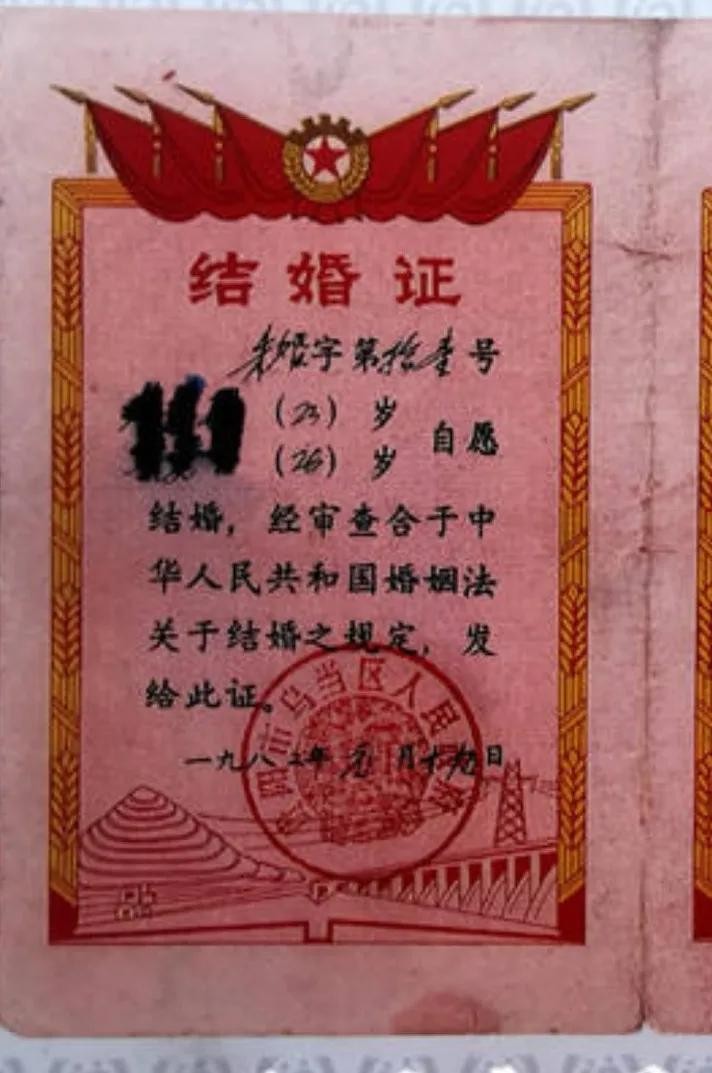 结婚证
朱婚字第拾壹号
(23)岁
(26)岁
自愿
结婚，经审查合于中
华人民共和国婚姻法
关于结婚之规定，发
给此证。
一九八二年元月十九日
贵阳市乌当区人民政府